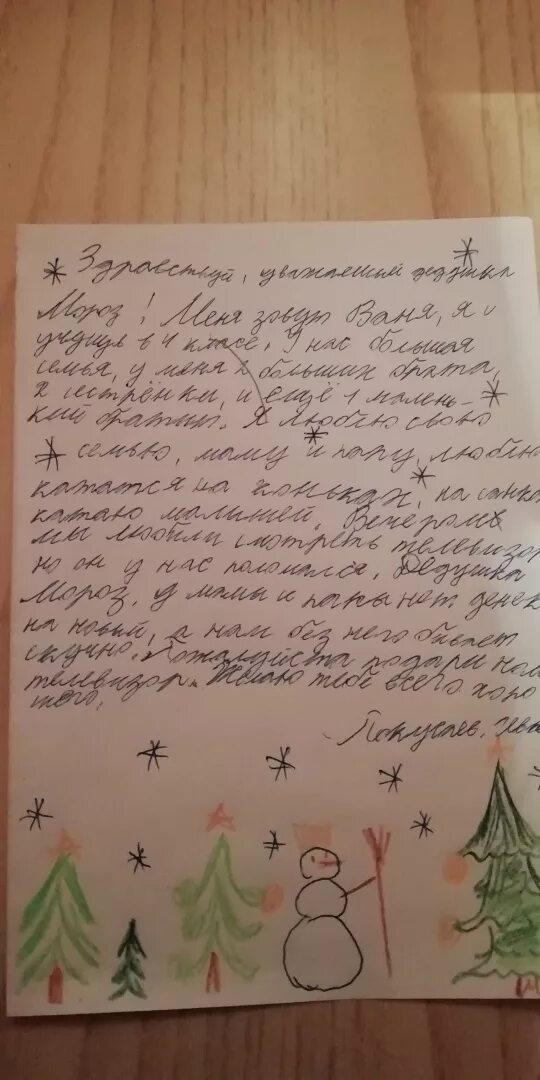 Здравствуй, уважаемый дедушка
Мороз! Меня зовут Ваня, я
учусь в 4 класе. У нас большая
семья, у меня 2 больших брата,
2 сестрёнки, и ещё 1 малень-
кий братик. Я люблю свою
семью, маму и папу, люблю
кататся на коньках, на санках
катаю малышей. Вечером
мы любили смотреть телевизор
но он у нас поломался. Дедушка
Мороз, у мамы и папы нет денек
на новый, а нам без него бывает
скучно. Пожалуйста подари нам
телевизор. Желаю тебе всего хоро
шего.
Покусаев